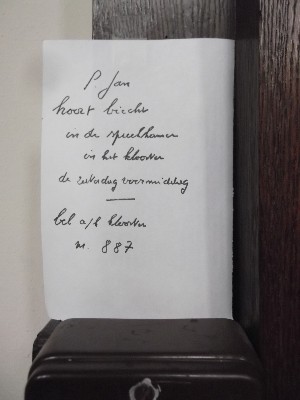 P. Jan
hoort biecht
in de spreekkamer
in het klooster
de zaterdag voormiddag
bel a/h klooster
nr. 887